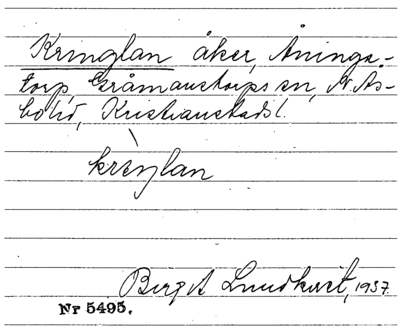 Kringlan åker, Åninga-
torp, Gråmanstorps sn, N. Ås-
bo hd, Kristianstads l.
krìŋlan
Birgit Lundkvist, 1937.
Nr 5495.